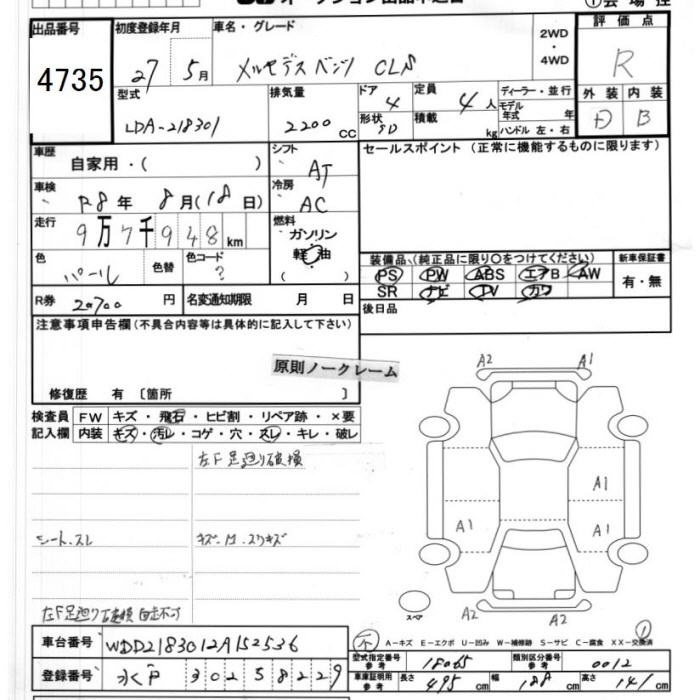 オークション出品申込書
①会場控
出品番号
4735
初度登録年月
27 5月
車名・グレード
メルセデスベンツ CLS
2WD
・
4WD
評価点
R
型式
LDA-218301
排気量
2200 cc
ドア
4
形状
SD
定員
4人
積載
kg
ディーラー・並行
モデル年式 年
ハンドル 左・右
外装
D
内装
B
車歴
自家用・( )
シフト
AT
セールスポイント (正常に機能するものに限ります)
車検
R8年 8月(18日)
冷房
AC
走行
9万7千948km
燃料
ガソリン
軽油
( )
色
パール
色替
色コード
?
装備品(純正品に限り○をつけてください)
PS PW ABS エアB AW
SR ナビ TV カワ
新車保証書
有・無
R券
20700円
名変通知期限 月 日
後日品
注意事項申告欄(不具合内容等は具体的に記入して下さい)
原則ノークレーム
修復歴 有〔箇所 〕
検査員記入欄
FW キズ・飛石・ヒビ割・リペア跡・×要
内装 キズ・汚レ・コゲ・穴・スレ・キレ・破レ
左F足廻り破損
シート、スレ
キズ、凹、スリキズ
左F足廻り破損 自走不可
A2
A1
A1
A1
A1
A2
A2
スペア
①
A-キズ E-エクボ U-凹み W-補修跡 S-サビ C-腐食 XX-交換済
車台番号
WDD2183012A152536
型式指定番号
参考
18065
類別区分番号
参考
0012
登録番号
水戸 302 ち 8229
車庫証明用
参考
長さ 495cm
幅 188cm
高さ 141cm